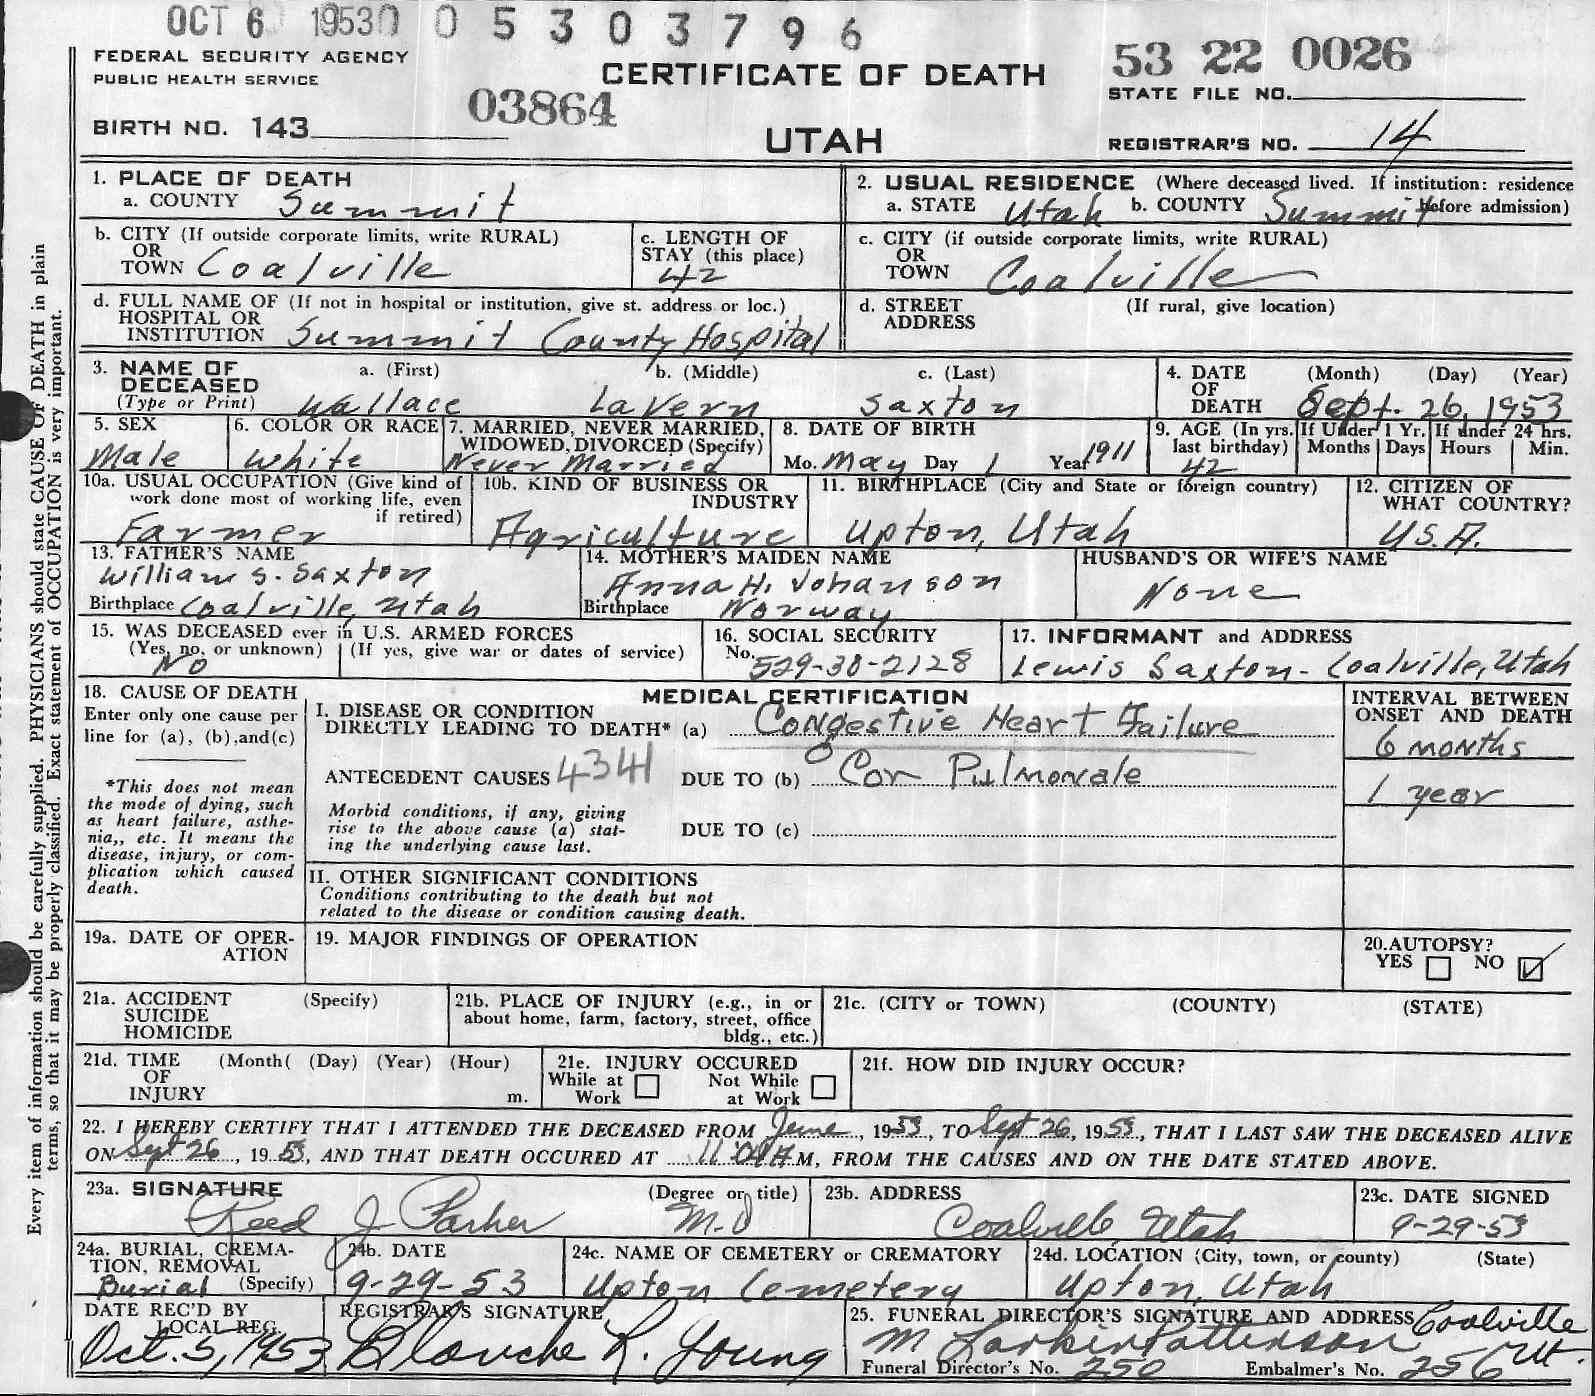 OCT 6 1953 0 0 5 3 0 3 7 9 6
FEDERAL SECURITY AGENCY
PUBLIC HEALTH SERVICE
CERTIFICATE OF DEATH
53 22 0026
STATE FILE NO.
03864
BIRTH NO. 143
UTAH
REGISTRAR'S NO. 14
1. PLACE OF DEATH
a. COUNTY Summit
2. USUAL RESIDENCE (Where deceased lived. If institution: residence before admission)
a. STATE Utah b. COUNTY Summit
b. CITY (If outside corporate limits, write RURAL)
OR
TOWN Coalville
c. LENGTH OF
STAY (this place)
42
c. CITY (if outside corporate limits, write RURAL)
OR
TOWN Coalville
d. FULL NAME OF (If not in hospital or institution, give st. address or loc.)
HOSPITAL OR
INSTITUTION Summit County Hospital
d. STREET (If rural, give location)
ADDRESS
3. NAME OF DECEASED
(Type or Print)
a. (First) b. (Middle) c. (Last)
Wallace LaVern Saxton
4. DATE OF DEATH
(Month) (Day) (Year)
Sept. 26, 1953
5. SEX
Male
6. COLOR OR RACE
White
7. MARRIED, NEVER MARRIED,
WIDOWED, DIVORCED (Specify)
Never Married
8. DATE OF BIRTH
Mo. May Day 1 Year 1911
9. AGE (In yrs.
last birthday)
42
If Under 1 Yr.
Months Days
If under 24 hrs.
Hours Min.
10a. USUAL OCCUPATION (Give kind of
work done most of working life, even
if retired)
Farmer
10b. KIND OF BUSINESS OR
INDUSTRY
Agriculture
11. BIRTHPLACE (City and State or foreign country)
Upton, Utah
12. CITIZEN OF
WHAT COUNTRY?
U.S.A.
13. FATHER'S NAME
William S. Saxton
Birthplace Coalville, Utah
14. MOTHER'S MAIDEN NAME
Anna H. Johanson
Birthplace Norway
HUSBAND'S OR WIFE'S NAME
None
15. WAS DECEASED ever in U.S. ARMED FORCES
(Yes, no, or unknown) (If yes, give war or dates of service)
No
16. SOCIAL SECURITY
No. 529-30-2128
17. INFORMANT and ADDRESS
Lewis Saxton - Coalville, Utah
18. CAUSE OF DEATH
Enter only one cause per
line for (a), (b), and (c)
*This does not mean
the mode of dying, such
as heart failure, asthe-
nia,, etc. It means the
disease, injury, or com-
plication which caused
death.
MEDICAL CERTIFICATION
I. DISEASE OR CONDITION
DIRECTLY LEADING TO DEATH* (a) Congestive Heart Failure
ANTECEDENT CAUSES 4341 DUE TO (b) Cor Pulmonale
Morbid conditions, if any, giving
rise to the above cause (a) stat-
ing the underlying cause last.
DUE TO (c)
INTERVAL BETWEEN
ONSET AND DEATH
6 months
1 year
II. OTHER SIGNIFICANT CONDITIONS
Conditions contributing to the death but not
related to the disease or condition causing death.
19a. DATE OF OPER-
ATION
19. MAJOR FINDINGS OF OPERATION
20. AUTOPSY?
YES NO
21a. ACCIDENT (Specify)
SUICIDE
HOMICIDE
21b. PLACE OF INJURY (e.g., in or
about home, farm, factory, street, office
bldg., etc.)
21c. (CITY or TOWN) (COUNTY) (STATE)
21d. TIME (Month( (Day) (Year) (Hour)
OF
INJURY m.
21e. INJURY OCCURED
While at Work Not While at Work
21f. HOW DID INJURY OCCUR?
22. I HEREBY CERTIFY THAT I ATTENDED THE DECEASED FROM June, 1953, TO Sept 26, 1953, THAT I LAST SAW THE DECEASED ALIVE
ON Sept 26, 1953, AND THAT DEATH OCCURED AT 11:04 A M, FROM THE CAUSES AND ON THE DATE STATED ABOVE.
23a. SIGNATURE (Degree or title)
Reed J Parker M.D
23b. ADDRESS
Coalville, Utah
23c. DATE SIGNED
9-29-53
24a. BURIAL, CREMA-
TION, REMOVAL
Burial (Specify)
24b. DATE
9-29-53
24c. NAME OF CEMETERY or CREMATORY
Upton Cemetery
24d. LOCATION (City, town, or county) (State)
Upton, Utah
DATE REC'D BY
LOCAL REG.
Oct. 5, 1953
REGISTRAR'S SIGNATURE
Blanche R. Young
25. FUNERAL DIRECTOR'S SIGNATURE AND ADDRESS
M Larkin Patterson Coalville Ut.
Funeral Director's No. 250 Embalmer's No. 256
Every item of information should be carefully supplied. PHYSICIANS should state CAUSE OF DEATH in plain
terms, so that it may be properly classified. Exact statement of OCCUPATION is very important.